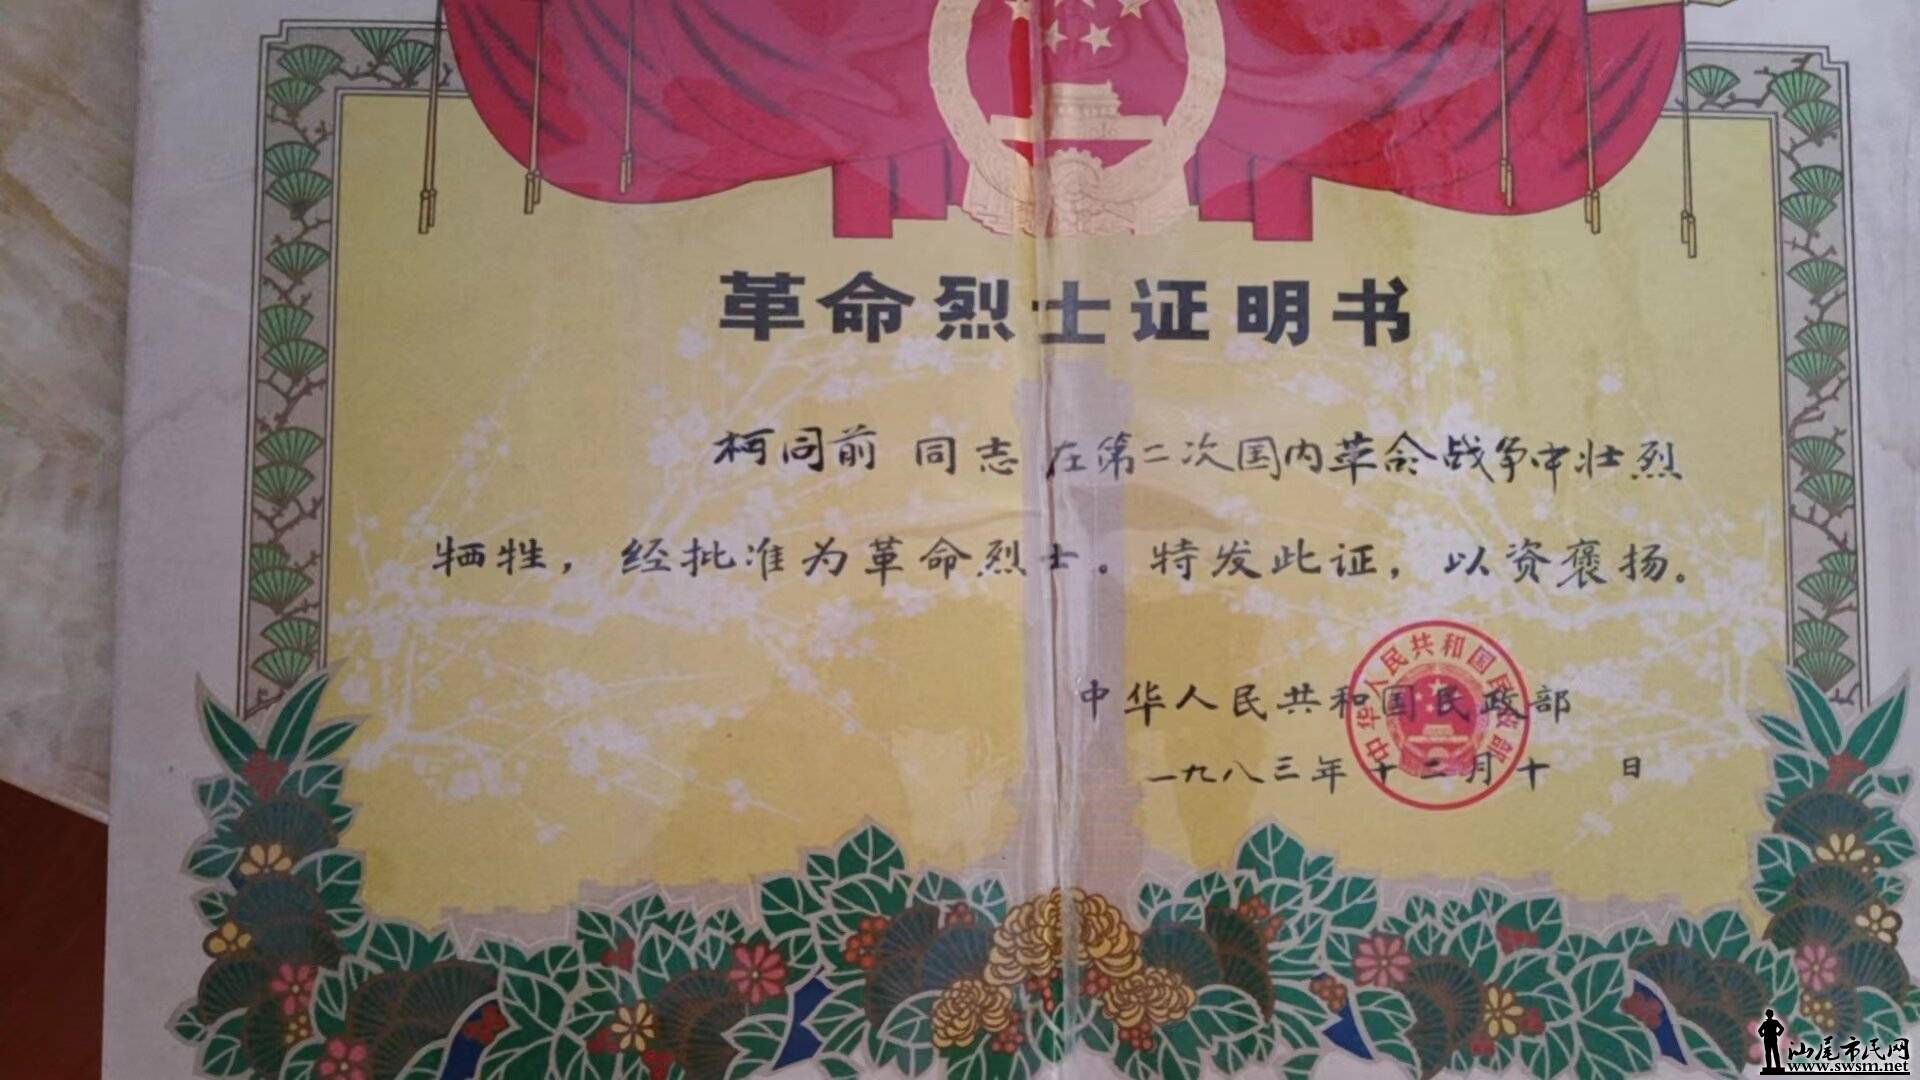 革命烈士证明书
柯同前 同志 在第二次国内革命战争中壮烈
牺牲，经批准为革命烈士。特发此证，以资褒扬。
中华人民共和国民政部
中华人民共和国民政部
一九八三年十二月十 日
汕尾市民网
www.swsm.net